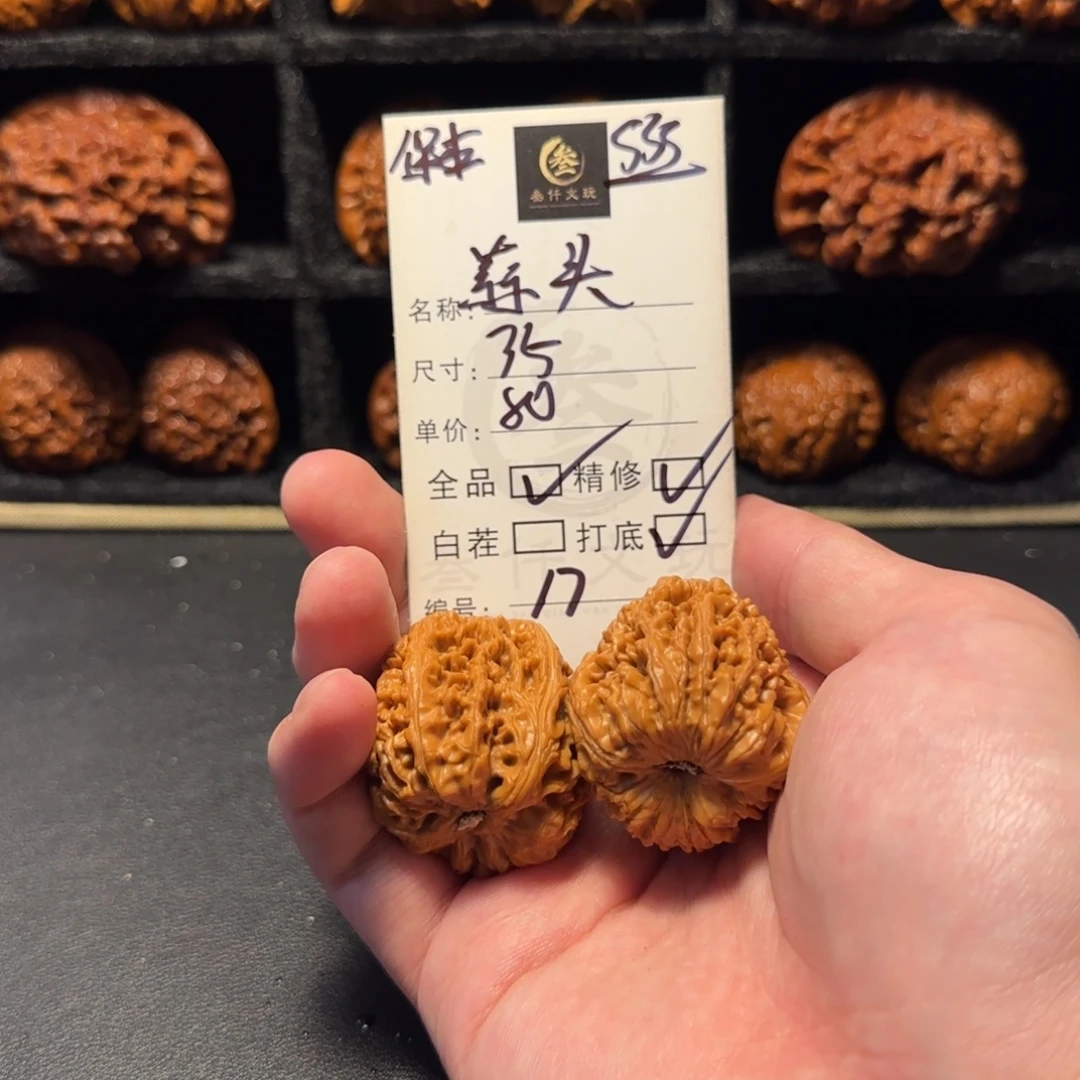 保本 535
叁仟文玩
名称: 蒜头
尺寸: 35
单价: 80
全品 ✓ 精修 ✓
白茬 打底 ✓
编号: 17